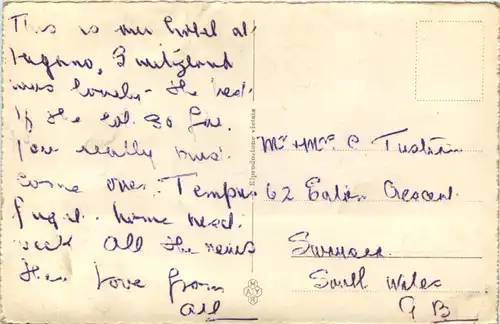 This is our hotel at
Lugano, Switzland
was lovely - the best
of the hol. so far.
You really must
come over. Tempus
fugit. home next
week all the news
then Love from
all
Riproduzione vietata
MAYR
Mr + Mrs C. Tustin
62 Eaton Crescent.
Swansea
South Wales
G B